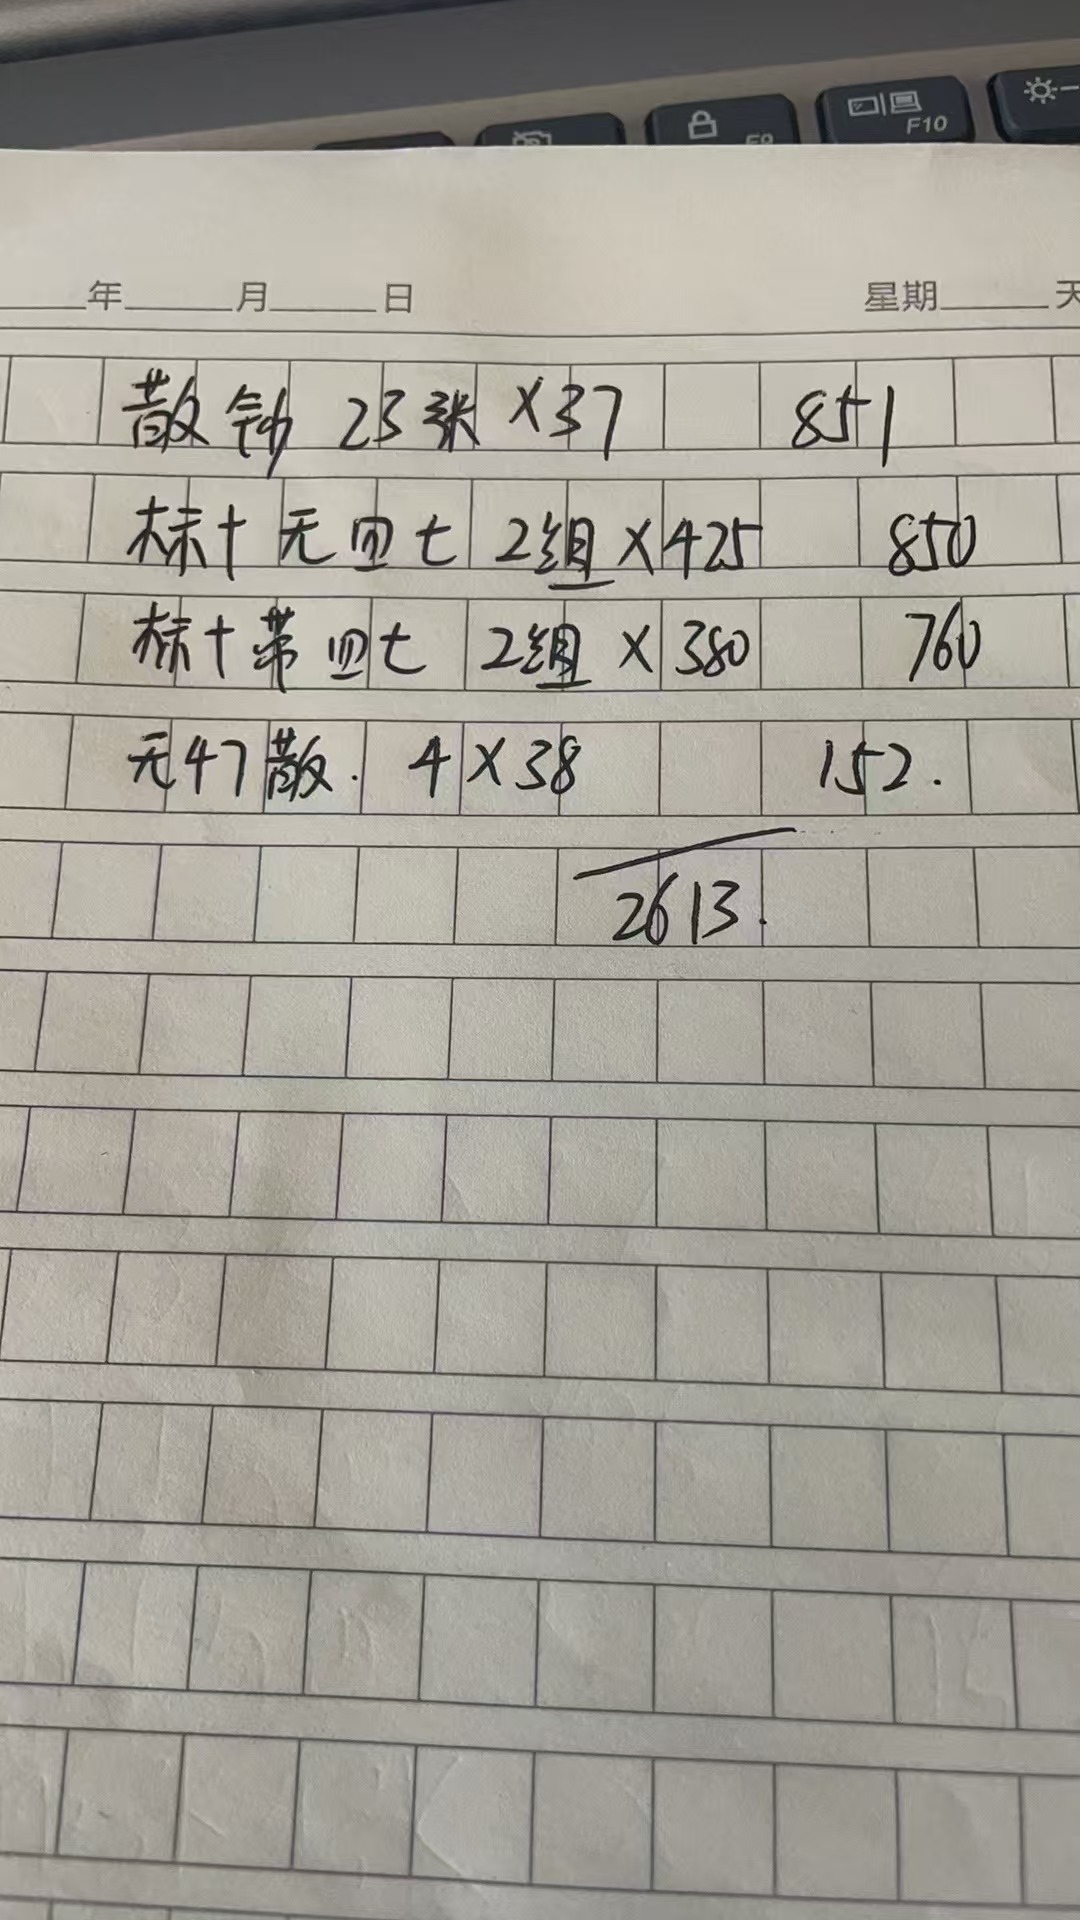 F9
F10
年 月 日 星期 天
散钞 23张 ×37 851
标十无四七 2组 ×425 850
标十带四七 2组 × 380 760
无47散. 4×38 152.
2613.